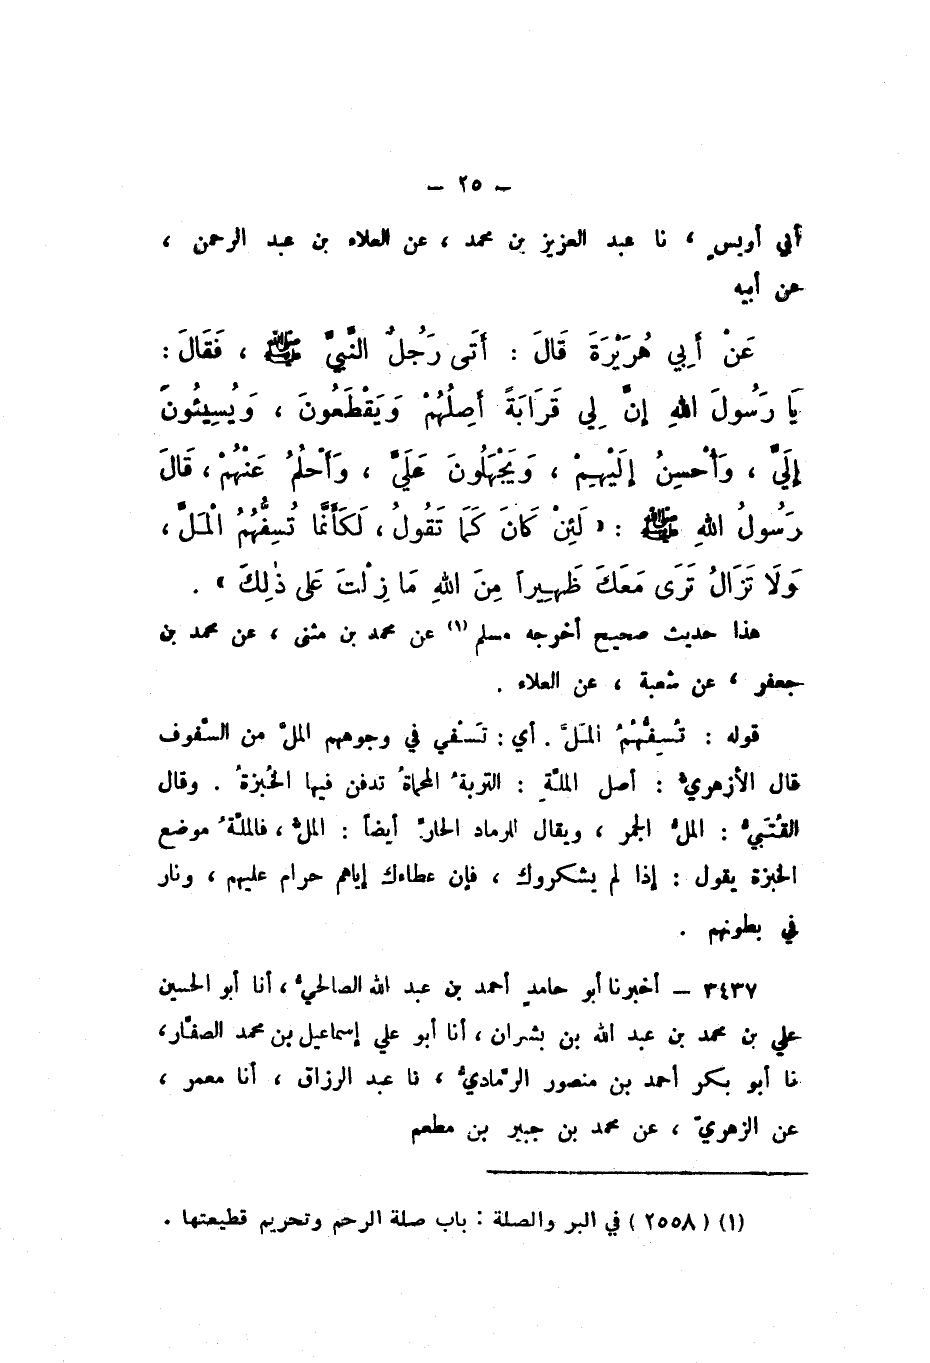 — ٢٥ —
أبي أويسٍ ، نا عبد العزيز بن محمد ، عن العلاء بن عبد الرحمن ،
عن أبيه
عَنْ أَبِي هُرَيْرَةَ قَالَ : أَتَى رَجُلٌ النَّبِيَّ ﷺ ، فَقَالَ :
يَا رَسُولَ اللهِ إِنَّ لِي قَرَابَةً أَصِلُهُمْ وَيَقْطَعُونَ ، وَيُسِيئُونَ
إِلَيَّ ، وَأُحْسِنُ إِلَيْهِمْ ، وَيَجْهَلُونَ عَلَيَّ ، وَأَحْلُمُ عَنْهُمْ ، قَالَ
رَسُولُ اللهِ ﷺ : « لَئِنْ كَانَ كَمَا تَقُولُ ، لَكَأَنَّمَا تُسِفُّهُمُ الْمَلَّ ،
وَلَا تَزَالُ تَرَى مَعَكَ ظَهِيراً مِنَ اللهِ مَا زِلْتَ عَلَى ذٰلِكَ » .
هذا حديث صحيح أخرجه مسلم (١) عن محمد بن مثنى ، عن محمد بن
جعفر ، عن شعبة ، عن العلاء .
قوله : تُسِفُّهُمُ المَلَّ . أي : تَسْفي في وجوههم الملّ من السَّفوف
قال الأزهريُّ : أصل الملَّةِ : التربةُ المحماةُ تدفن فيها الخُبزةُ . وقال
القُتَبيُّ : الملُّ الجمر ، ويقال للرماد الحارِّ أيضاً : الملُّ ، فالملَّةُ موضع
الخبزة يقول : إذا لم يشكروك ، فإن عطاءك إياهم حرام عليهم ، ونار
في بطونهم .
٣٤٣٧ — أخبرنا أبو حامدٍ أحمد بن عبد الله الصالحيُّ ، أنا أبو الحسين
علي بن محمد بن عبد الله بن بشران ، أنا أبو علي إسماعيل بن محمد الصفَّار ،
نا أبو بكر أحمد بن منصور الرَّماديُّ ، نا عبد الرزاق ، أنا معمر ،
عن الزهريِّ ، عن محمد بن جبير بن مطعم
(١) (٢٥٥٨) في البر والصلة : باب صلة الرحم وتحريم قطيعتها .